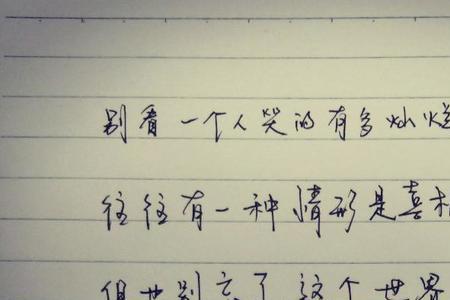 别看一个人笑的有多灿烂
往往有一种情形是喜
但也别忘了这个世界